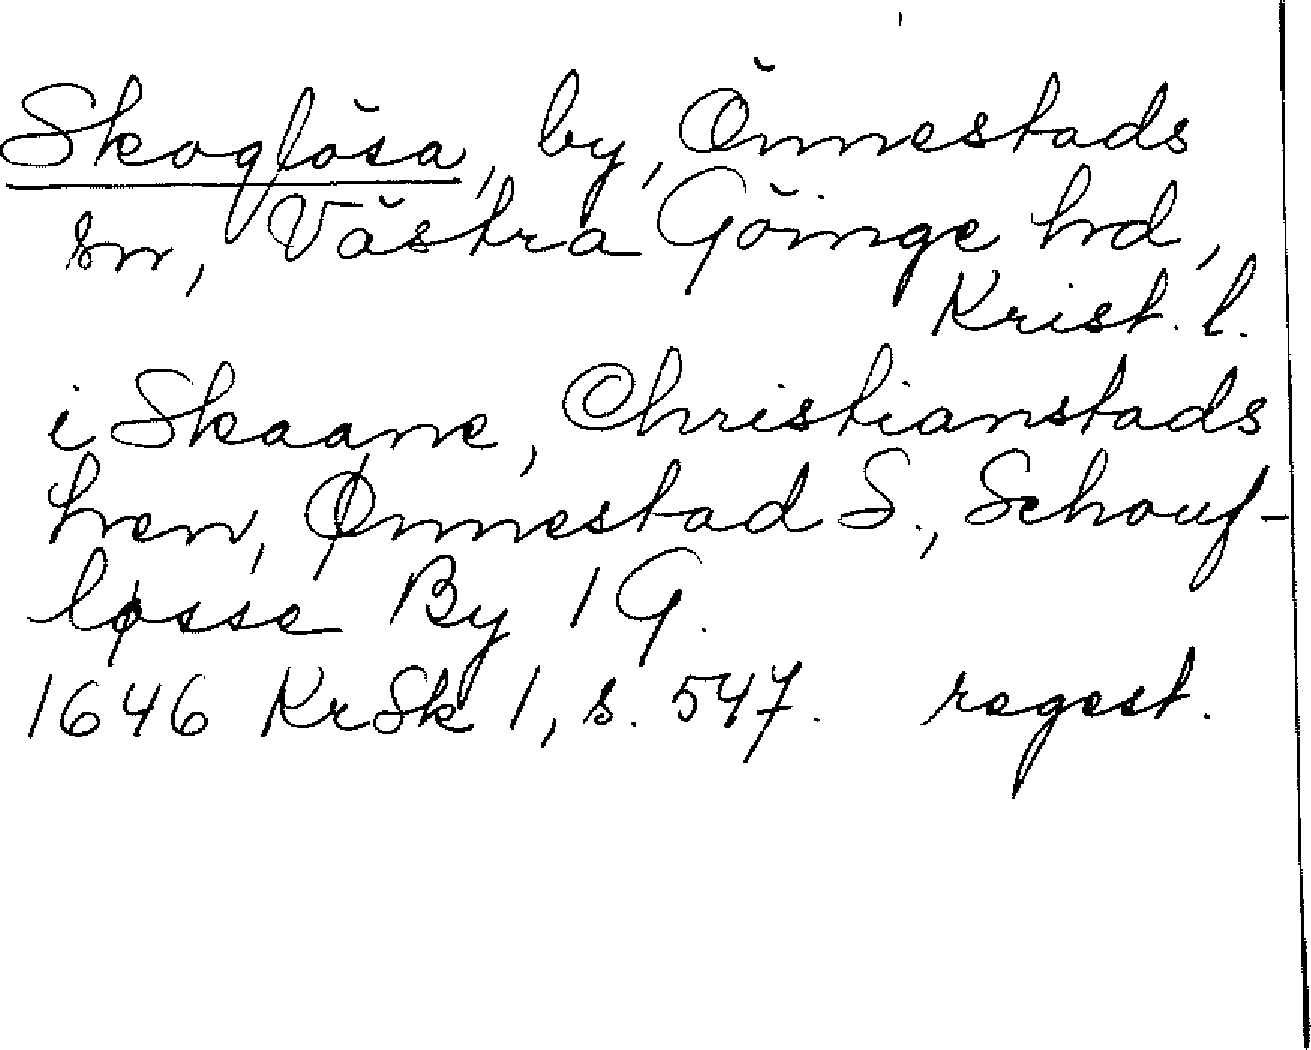 Skoglösa, by, Önnestads
sn, Västra Göinge hd,
Krist. l.
i Skaane, Christianstads
hren, Ønnestad S., Schoug-
løsse By 1 G.
1646 KrSk 1, s. 547. regest.